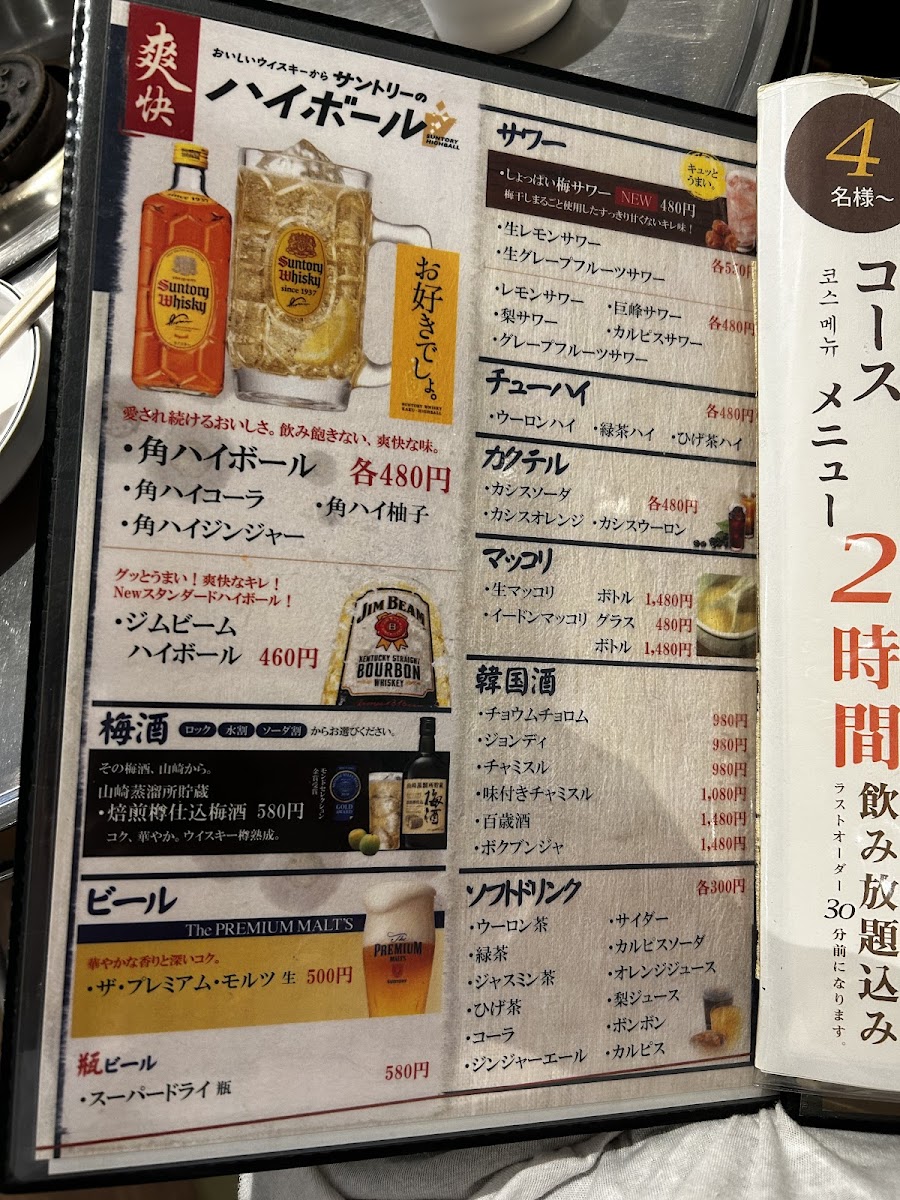 爽快
おいしいウイスキーから サントリーの
ハイボール
SUNTORY
HIGHBALL
Suntory
Whisky
Suntory
Whisky
since 1937
お好きでしょ。
愛され続けるおいしさ。飲み飽きない、爽快な味。
・角ハイボール 各480円
・角ハイコーラ ・角ハイ柚子
・角ハイジンジャー
グッとうまい！爽快なキレ！
Newスタンダードハイボール！
・ジムビーム
ハイボール 460円
JIM BEAM
KENTUCKY STRAIGHT
BOURBON
WHISKEY
梅酒 ロック 水割 ソーダ割 からお選びください。
その梅酒、山崎から。
山崎蒸溜所貯蔵
・焙煎樽仕込梅酒 580円
コク、華やか。ウイスキー樽熟成。
モンドセレクション
金賞受賞
GOLD
山崎蒸溜所貯蔵
梅酒
ビール
The PREMIUM MALT'S
華やかな香りと深いコク。
・ザ・プレミアム・モルツ 生 500円
The
PREMIUM
MALT'S
瓶ビール 580円
・スーパードライ 瓶
サワー
・しょっぱい梅サワー NEW 480円
梅干しまるごと使用したすっきり甘くないキレ味！
キュッと
うまい。
・生レモンサワー
・生グレープフルーツサワー
・レモンサワー ・巨峰サワー 各480円
・梨サワー ・カルピスサワー
・グレープフルーツサワー
チューハイ 各480円
・ウーロンハイ ・緑茶ハイ ・ひげ茶ハイ
カクテル
・カシスソーダ 各480円
・カシスオレンジ ・カシスウーロン
マッコリ
・生マッコリ ボトル 1,480円
・イードンマッコリ グラス 480円
ボトル 1,480円
韓国酒
・チョウムチョロム 980円
・ジョンディ 980円
・チャミスル 980円
・味付きチャミスル 1,080円
・百歳酒 1,480円
・ボクブンジャ 1,480円
ソフトドリンク 各300円
・ウーロン茶 ・サイダー
・緑茶 ・カルピスソーダ
・ジャスミン茶 ・オレンジジュース
・ひげ茶 ・梨ジュース
・コーラ ・ポンポン
・ジンジャーエール ・カルピス
4
名様～
コースメニュー
코스 메뉴
2時間飲み放題込み
ラストオーダー30分前になります。